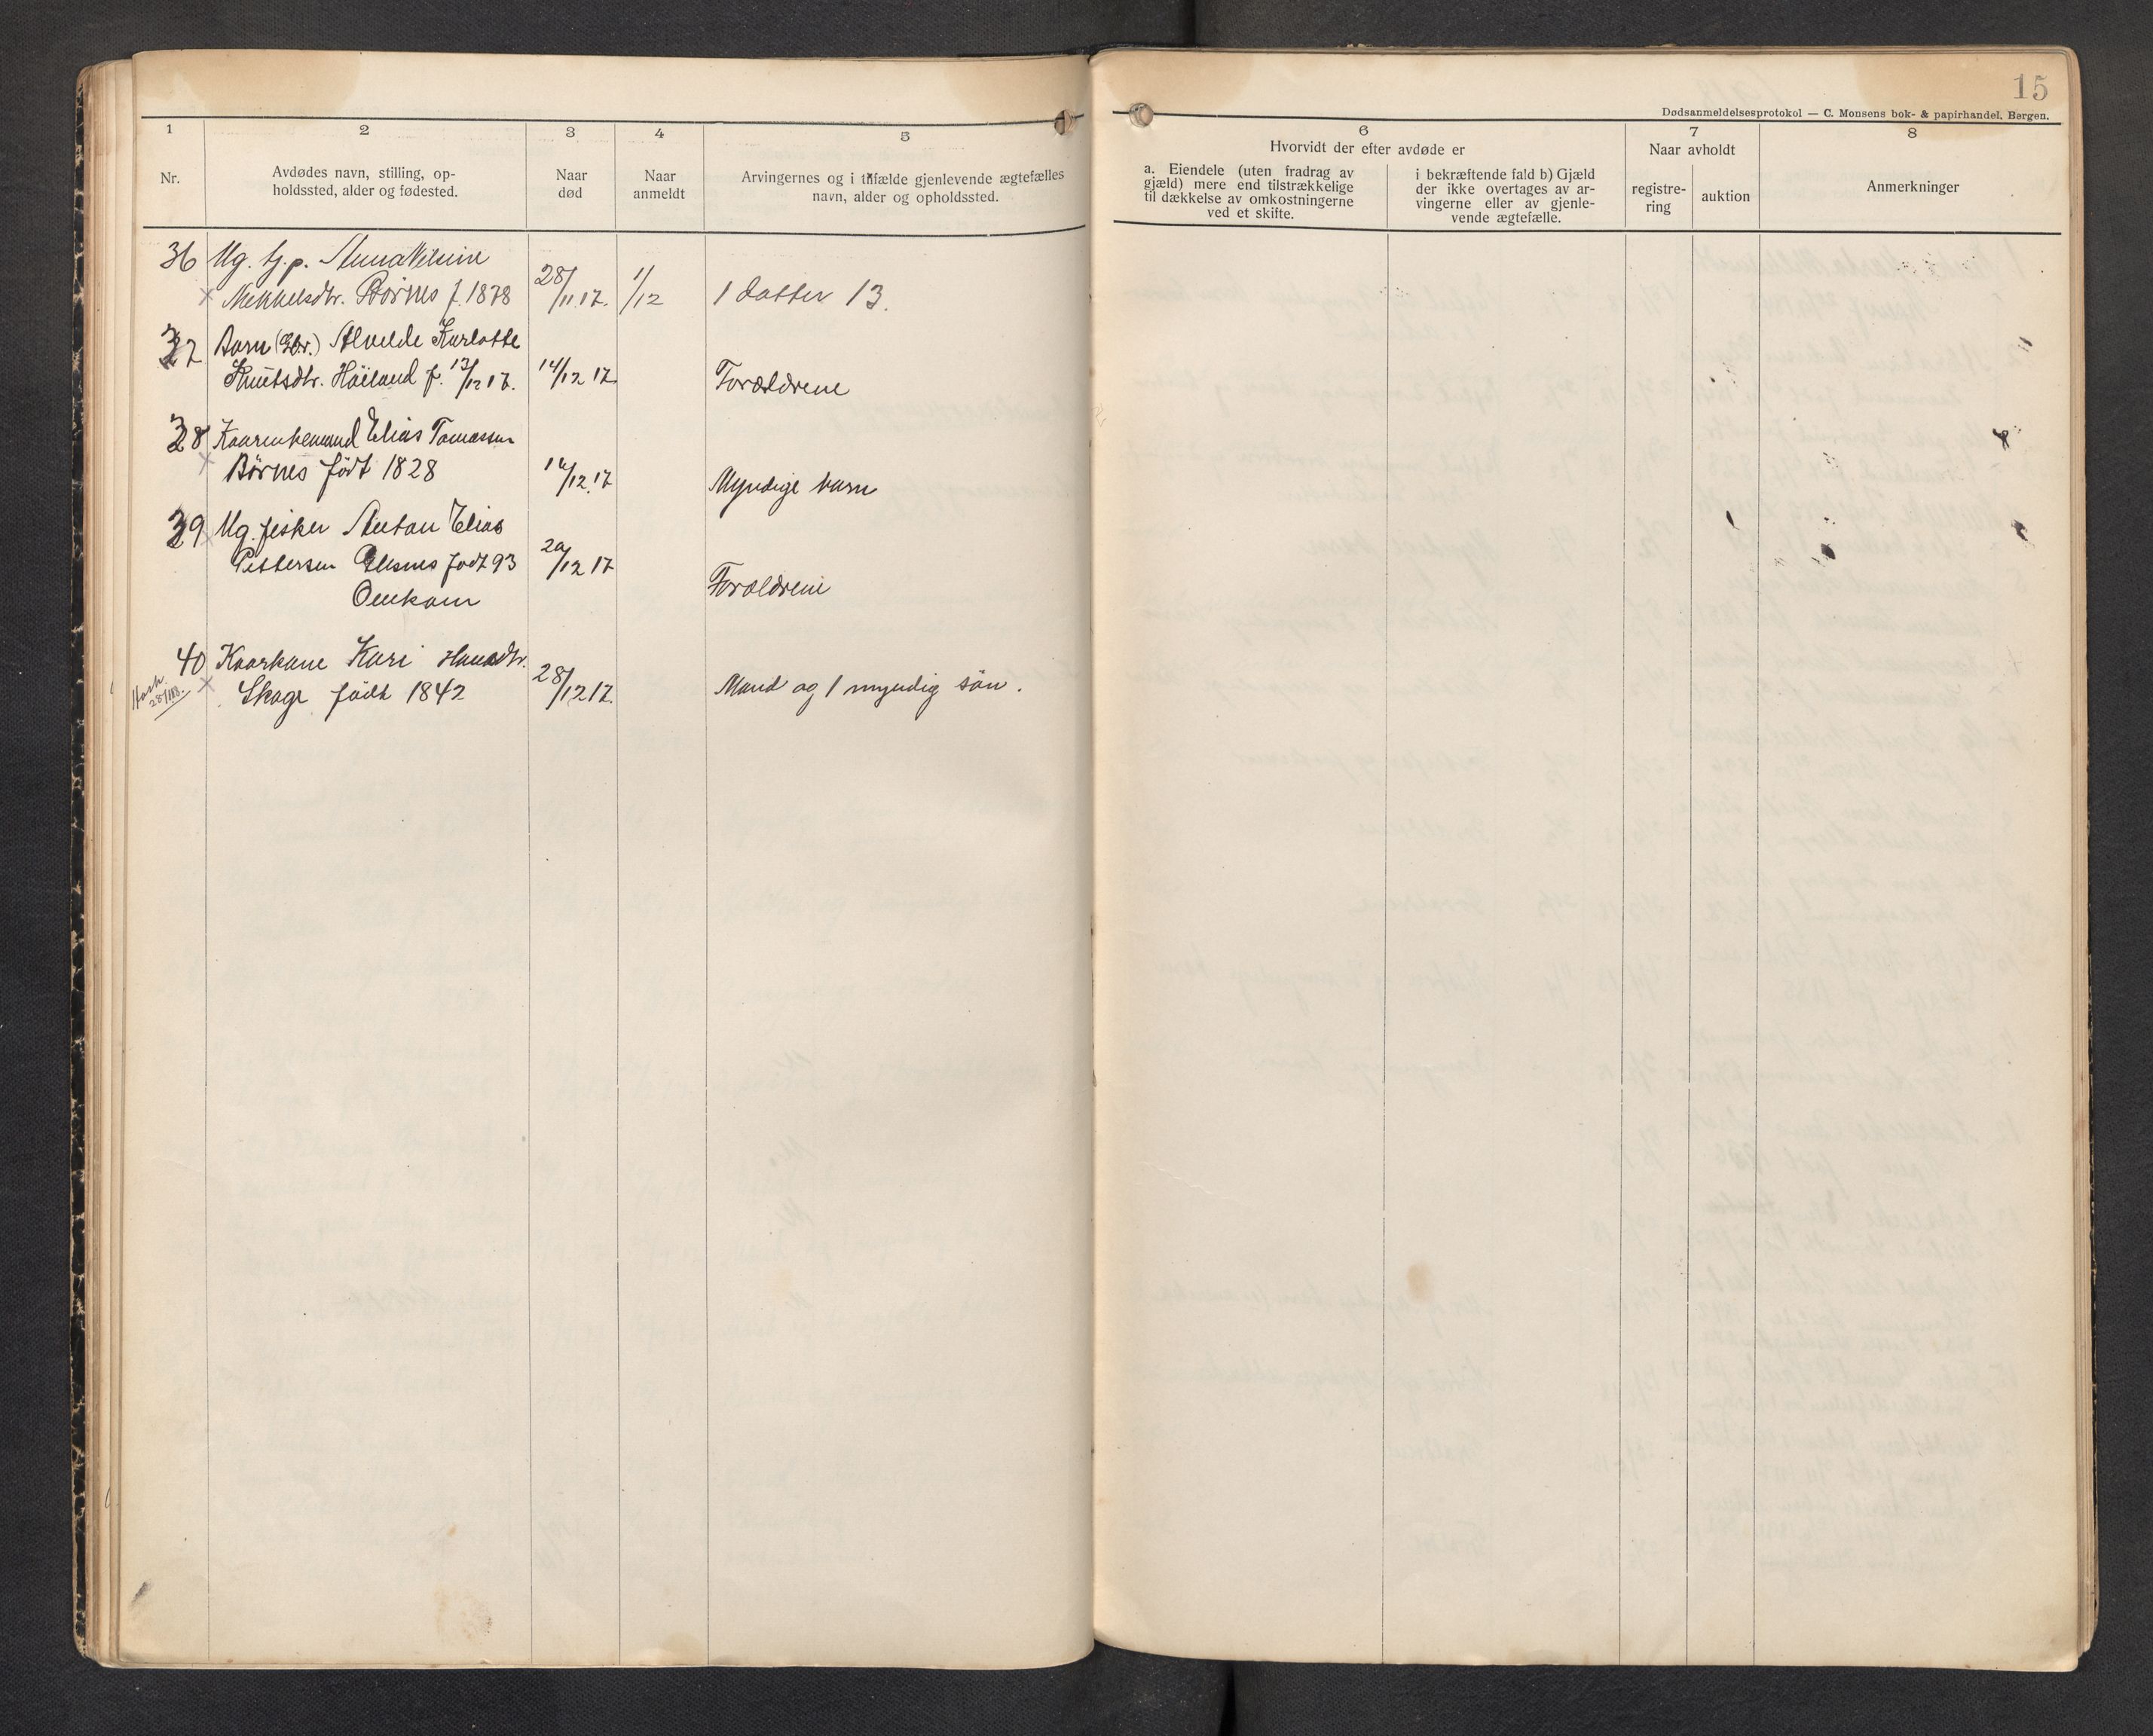 15
Dødsanmeldelsesprotokol — C. Monsens bok- & papirhandel, Bergen.
1
2
3
4
5
Nr.
Avdødes navn, stilling, op-
holdssted, alder og fødested.
Naar
død
Naar
anmeldt
Arvingernes og i tilfælde gjenlevende ægtefælles
navn, alder og opholdssted.
6
Hvorvidt der efter avdøde er
a. Eiendele (uten fradrag av
gjæld) mere end tilstrækkelige
til dækkelse av omkostningerne
ved et skifte.
i bekræftende fald b) Gjæld
der ikke overtages av ar-
vingerne eller av gjenle-
vende ægtefælle.
7
Naar avholdt
registre-
ring
auktion
8
Anmerkninger
36 Ug. tj.p. Anna
Mekkelsdtr. Börnes f. 1878 28/11.17. 1/12 1 datter 13.
37 Barn Alvelde Karlotte
Knutsdtr. Höiland f. 13/12 17. 14/12 17 Forældrene
38 Kaarenkemand Elias Tomassen
Börnes född 1828 /12.17 Myndige barn
39 Ug. fisker Anton Elias
Pettersen född 93 20/12 17
Omkom Forældrene
40 Kaarkone Kari Hansdtr.
Skage född 1842 28/12 17. Mand og 1 myndig sön.